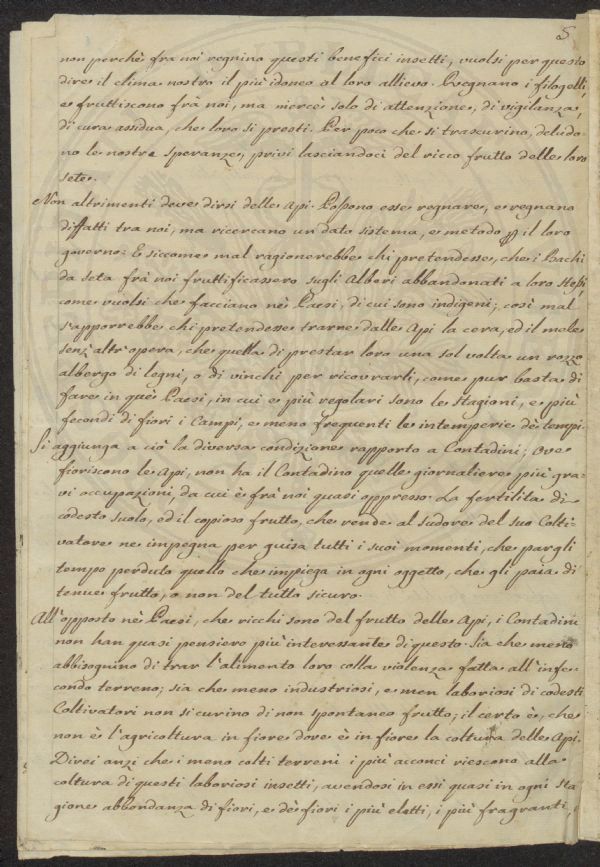 5
non perchè fra noi regnino questi benefici insetti, vuolsi per questo
dire il clima nostro il più idoneo al loro allievo. Regnano i filogelli,
e fruttiscono frà noi, ma mercè solo di attenzione, di vigilanza,
di cura assidua, che loro si presti. Per poco che si trascurino, deludo-
no le nostre speranze, privi lasciandoci del ricco frutto delle loro
sete.
Non altrimenti deve dirsi delle Api. Possono esse regnare, e regnano
diffatti tra noi, ma ricercano un dato sistema, e metodo p il loro
governo: E siccome mal ragionerebbe chi pretendesse, che i Bachi
da seta frà noi fruttificassero sugli Alberi abbandonati a loro stessi,
come vuolsi che facciano nè Paesi, di cui sono indigeni; così mal
s'apporrebbe chi pretendesse trarne dalle Api la cera, ed il mele
senz'altr'opera, che quella di prestar loro una sol volta un rozzo
albergo di legni, o di vinchi per ricovrarli, come pur basta di
fare in què Paesi, in cui e più regolari sono le Stagioni, e più
fecondi di fiori i Campi, e meno frequenti le intemperie dè tempi.
Si aggiunga a ciò la diversa condizione rapporto a Contadini; Ove
fioriscono le Api, non ha il Contadino quelle giornaliere più gra-
vi occupazioni, da cui è frà noi quasi oppresso. La fertilita di
codesto suolo, ed il copioso frutto, che rende al sudore del suo Colti-
vatore ne impegna per guisa tutti i suoi momenti, che pargli
tempo perduto quello che impiega in ogni oggetto, che gli paia di
tenue frutto, o non del tutto sicuro.
All'opposto nè Paesi, che ricchi sono del frutto delle Api, i Contadini
non han quasi pensiero più interessante di questo. Sia che meno
abbisognino di trar l'alimento loro colla violenza fatta all'infe-
condo terreno; sia che meno industriosi, e men laboriosi di codesti
Coltivatori non si curino di non spontaneo frutto; il certo è, che
non è l'agricoltura in fiore dove è in fiore la coltura delle Api.
Direi anzi che i meno colti terreni i più acconci riescono alla
coltura di questi laboriosi insetti, avendosi in essi quasi in ogni sta
gione abbondanza di fiori, e dè fiori i più eletti, i più fragranti,